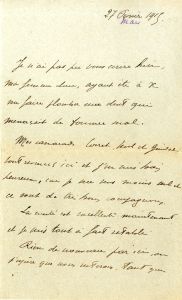 27 Février 1915
Mars
Je n'ai pas pu vous écrire hier,
ma pensée dure, ayant été à X
me faire plomber une dent qui
menaçait de tourner mal.
Mes camarades Coret, Morel et
sont venus ici et j'en suis bien
heureux, car je me sens moins seul et
ce sont de très bons compagnons.
La santé est excellente maintenant
et je suis tout à fait rétabli.
Rien de nouveau par ici, on
que nous resterons tant que